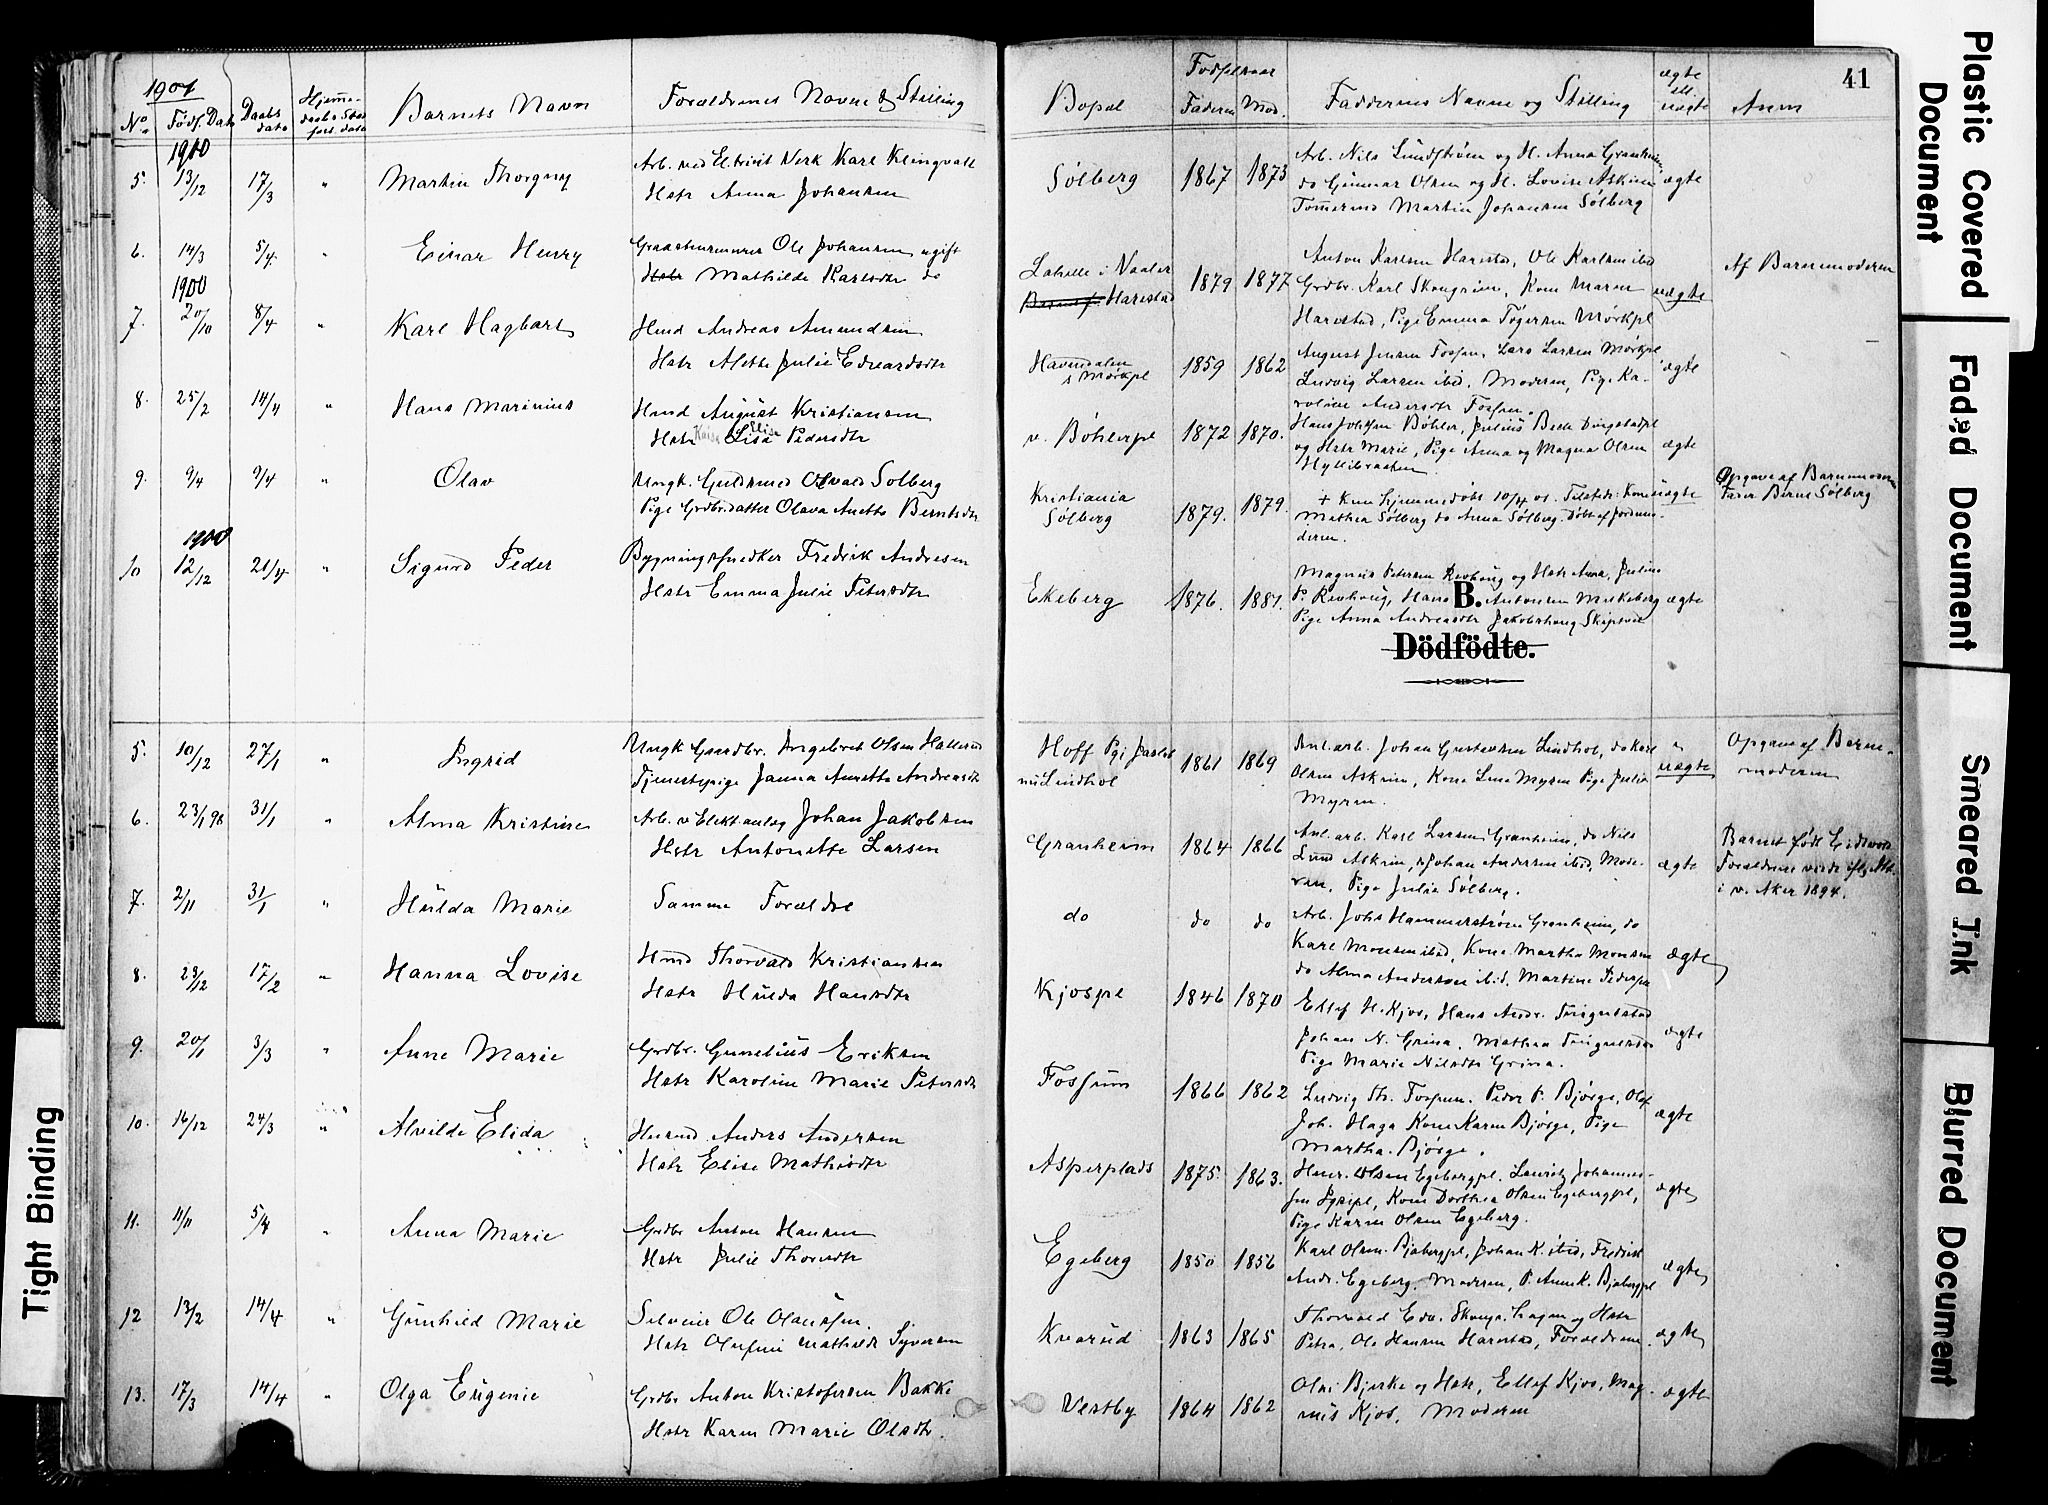 41
1901
No.
Föds. Dato
Daabs dato
Hjemme-
daabs Stad-
fest. dato
Barnets Navn
Forældrenes Navne & Stilling
Bopæl
Fødselsaar
Faderen
Mod.
Faddernes Navne og Stilling
ægte
ell.
uægte
Anm
1900
5. 13/12 17/3 " Martin Thorgny
Arb. ved El.trisit Verk Karl Klingvall
Hstr Anna Johansen
Sølberg 1867 1873
Arb. Nils Lundstrøm og H. Anna Granheim
do Gunnar Olsen og H. Lovise Askim
Tømermd Martin Johansen Sølberg
ægte
6. 14/3 5/4 " Einar Henry
Graastensminer Ole Johansen, ugift
Hstr Mathilde Karlsdtr do
i Vaaler
Harestad
1879 1877
Anton Karlsen Harestad, Ole Karlsen ibid
Grdbr. Karl Skougrim, Kone Maren
Harestad, Pige Emma Tøgersen Mørkpl
uægte
Af Barnemoderen
1900
7. 20/10 8/4 " Karl Hagbart
Hmd Andreas Amundsen
Hstr Alette Julie Edvardsdtr
Havendalen
s Mørkpl
1859 1862
August Jensen Fossen, Lars Larsen Mørkpl
Ludvig Larsen ibid, Moderen, Pige Ka-
roline Andersdtr Fossen.
ægte
8. 25/2 14/4 " Hans Marinius
Hmd August Kristiansen
Hstr Lise Pedersdtr
v. Bøhlerpl 1872 1870.
Hans Johsen Bøhler, Julius Beck Dingstadpl
og Hstr Marie, Pige Anna og Magna Olsen
Hyllibraaten
ægte
9. 9/4 9/4 " Olav
Ungk. Guldsmed Osvald Solberg
Pige Grdbr.datter Olava Anette Berntsdtr
Kristiania
Sølberg
1879. 1879.
+ Kun hjemmedøbt 10/4 01. Tilstede: Kone
Mathea Sølberg do Anna Sølberg. Døbt af Jordmo-
deren.
uægte
Opgave af Barnemoderen
Farer Bernt Sølberg
1900
10 12/12 21/4 " Sigurd Peder
Bygningssnedker Fredrik Andresen
Hstr Emma Julie Petersdtr
Ekeberg 1876. 1881.
Magnus Petersen Revhoug og Hstr Anna, Julius
P. Revhoug, Hans Antonsen Mukeberg
Pige Anna Andreasdtr Jakobshaug Skiptvet
ægte
B.
Dödfödte.
5. 10/12 27/1 " Ingrid
Ungk Gaardbr. Ingebret Olsen Hallerud
Tjenestepige Janna Anette Andreasdtr
Hoff
nu Lindhol
1861 1869
Anl.arb. Johan Gustavsen Lindhol, do Karl
Olsen Askrim, Kone Lina Myren Pige Julie
Myren.
uægte
Opgave af Barne-
moderen
6. 23/1 98 31/1 " Alma Kristine
Arb. v Elekt.anlæg Johan Jakobsen
Hstr Antonette Larsen
Granheim 1864 1866
Anl.arb. Karl Larsen Granheim, do Nils
Lund Askrim, Johan Andersen ibid, Mode-
ren, Pige Julie Sølberg.
ægte
Barnet født Eidsvold
Forældrene viede
i v. Aker 1894.
7. 2/11 31/1 " Hulda Marie
Samme Forældre
do do do
Arb. Johs Hammerstrøm Granheim, do
Karl Monsen ibid, Kone Martha Monsen
do Alma Anderson ibid, Martine Pederspl
ægte
8. 29/12 17/2 " Hanna Lovise
Hmd Thorvald Kristiansen
Hstr Hulda Hansdtr
Kjospl 1846 1870
Ellef H. Kjos, Hans Andr. Tingulstad
Johan N. Grina, Mathea Tingulstad
Pige Marie Nilsdtr Grina.
ægte
9. 20/1 3/3 " Anne Marie
Grdbr. Gunelius Eriksen
Hstr Karoline Marie Petersdtr
Fossum 1866 1862
Ludvig Th. Fossum. Peder P. Bjørge, Olaf
Joh. Haga Kone Karen Bjørge, Pige
Martha Bjørge.
ægte
10. 16/12 24/3 " Alvilde Elida
Husmd Anders Andersen
Hstr Elise Mathisdtr
Asperplads 1875. 1863.
Henr. Olsen Egebergpl. Lauritz Johannes-
sen, Kone Dorthea Olsen Egebergpl,
Pige Karen Olsen Egeberg.
ægte
11. 11/11 5/4 " Anna Marie
Grdbr Anton Hansen
Hstr Julie Thorsdtr
Egeberg 1850 1856
Karl Olsen Bjabergpl, Johan K. ibid, Fredrik
Andr. Egeberg. Moderen, P. Anne K. Bjabergpl
ægte
12 13/2 14/4 " Gunhild Marie
Selveier Ole Olaussen.
Hstr Olufine Mathilde Syversen
Kvarud 1863 1865
Thorvald Edv. Skouge Hagen og Hstr
Petra, Ole Hansen Harestad, Forældrene
ægte
13. 17/3 14/4 " Olga Eugenie
Grdbr Anton Kristofersen Bakke
Hstr Karen Marie Olsdtr.
Vestby 1864 1862
Olai Bjerke og Hstr, Ellef Kjos, Mag-
nus Kjos, Moderen
ægte
Plastic Covered
Document
Faded Document
Smeared Ink
Blurred Document
Tight Binding